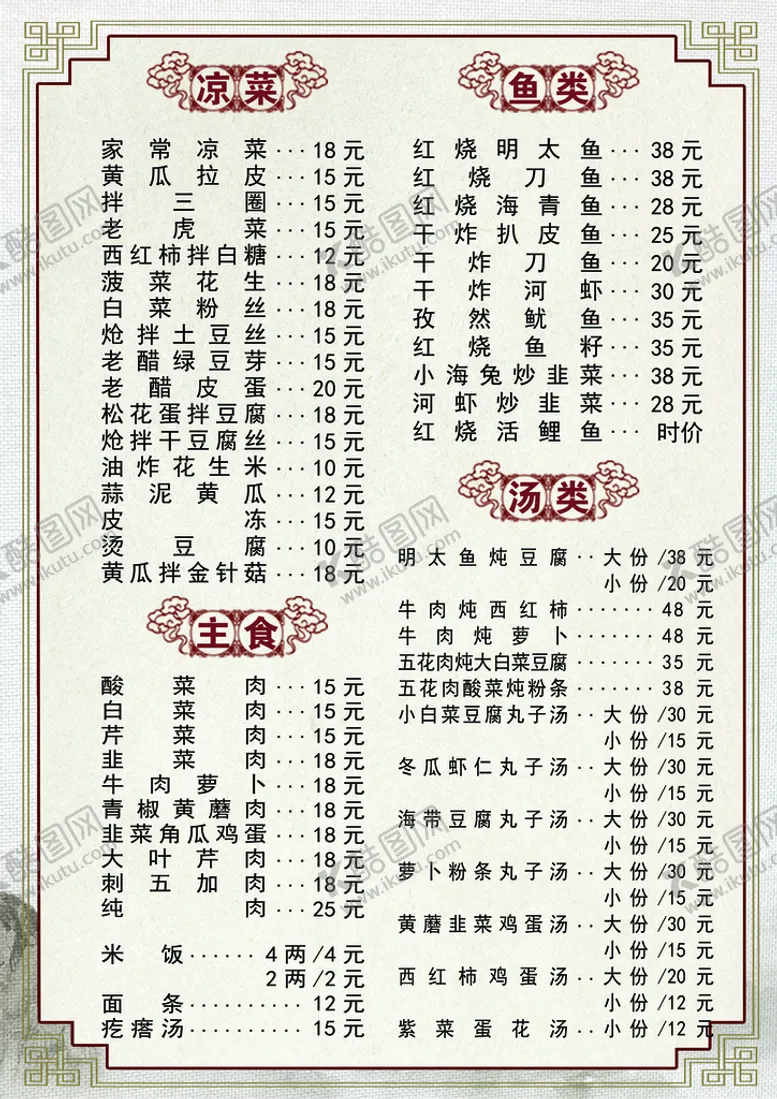 凉菜
家常凉菜···18元
黄瓜拉皮···15元
拌三圈···15元
老虎菜···15元
西红柿拌白糖···12元
菠菜花生···18元
白菜粉丝···18元
炝拌土豆丝···15元
老醋绿豆芽···15元
老醋皮蛋···20元
松花蛋拌豆腐···18元
炝拌干豆腐丝···15元
油炸花生米···10元
蒜泥黄瓜···12元
皮冻···15元
烫豆腐···10元
黄瓜拌金针菇···18元
主食
酸菜肉···15元
白菜肉···15元
芹菜肉···15元
韭菜肉···18元
牛肉萝卜···18元
青椒黄蘑肉···18元
韭菜角瓜鸡蛋···18元
大叶芹肉···18元
刺五加肉···18元
纯肉···25元
米饭······4两/4元
2两/2元
面条·······12元
疙瘩汤·······15元
鱼类
红烧明太鱼···38元
红烧刀鱼···38元
红烧海青鱼···28元
干炸扒皮鱼···25元
干炸刀鱼···20元
干炸河虾···30元
孜然鱿鱼···35元
红烧鱼籽···35元
小海兔炒韭菜···38元
河虾炒韭菜···28元
红烧活鲤鱼···时价
汤类
明太鱼炖豆腐··大份/38元
小份/20元
牛肉炖西红柿·······48元
牛肉炖萝卜·······48元
五花肉炖大白菜豆腐·······35元
五花肉酸菜炖粉条·······38元
小白菜豆腐丸子汤··大份/30元
小份/15元
冬瓜虾仁丸子汤··大份/30元
小份/15元
海带豆腐丸子汤··大份/30元
小份/15元
萝卜粉条丸子汤··大份/30元
小份/15元
黄蘑韭菜鸡蛋汤··大份/30元
小份/15元
西红柿鸡蛋汤··大份/20元
小份/12元
紫菜蛋花汤··小份/12元
酷图网
www.ikutu.com